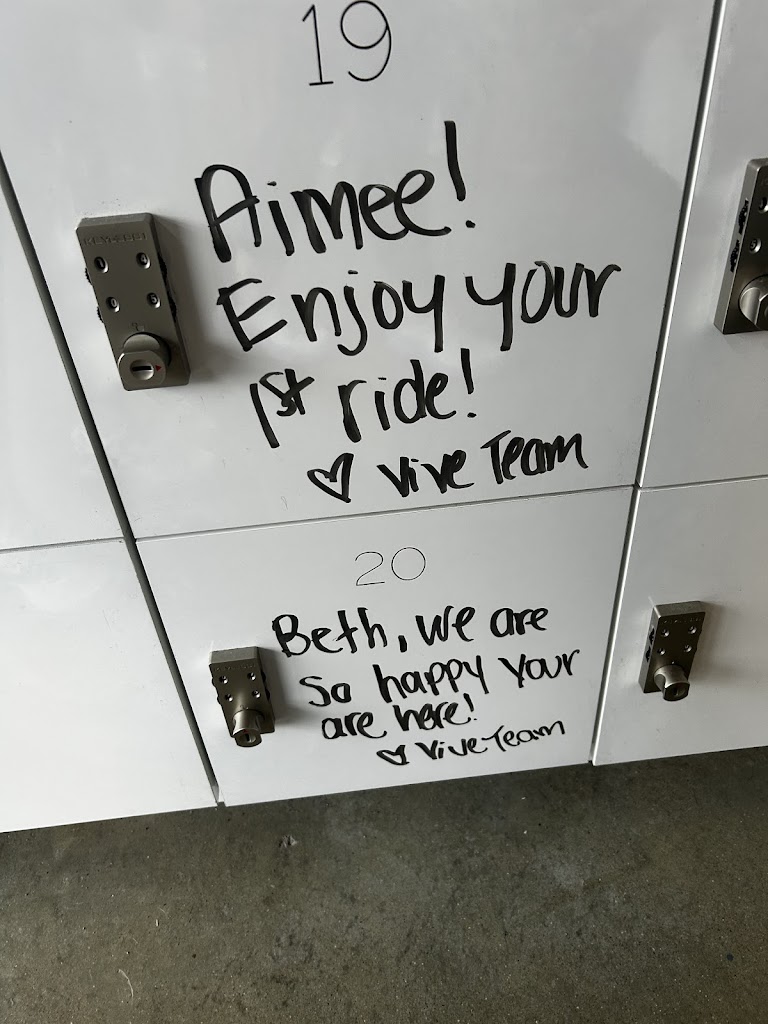 19
Aimee!
Enjoy your
1st ride!
♡ Vive Team
20
Beth, we are
so happy your
are here!
♡ Vive Team